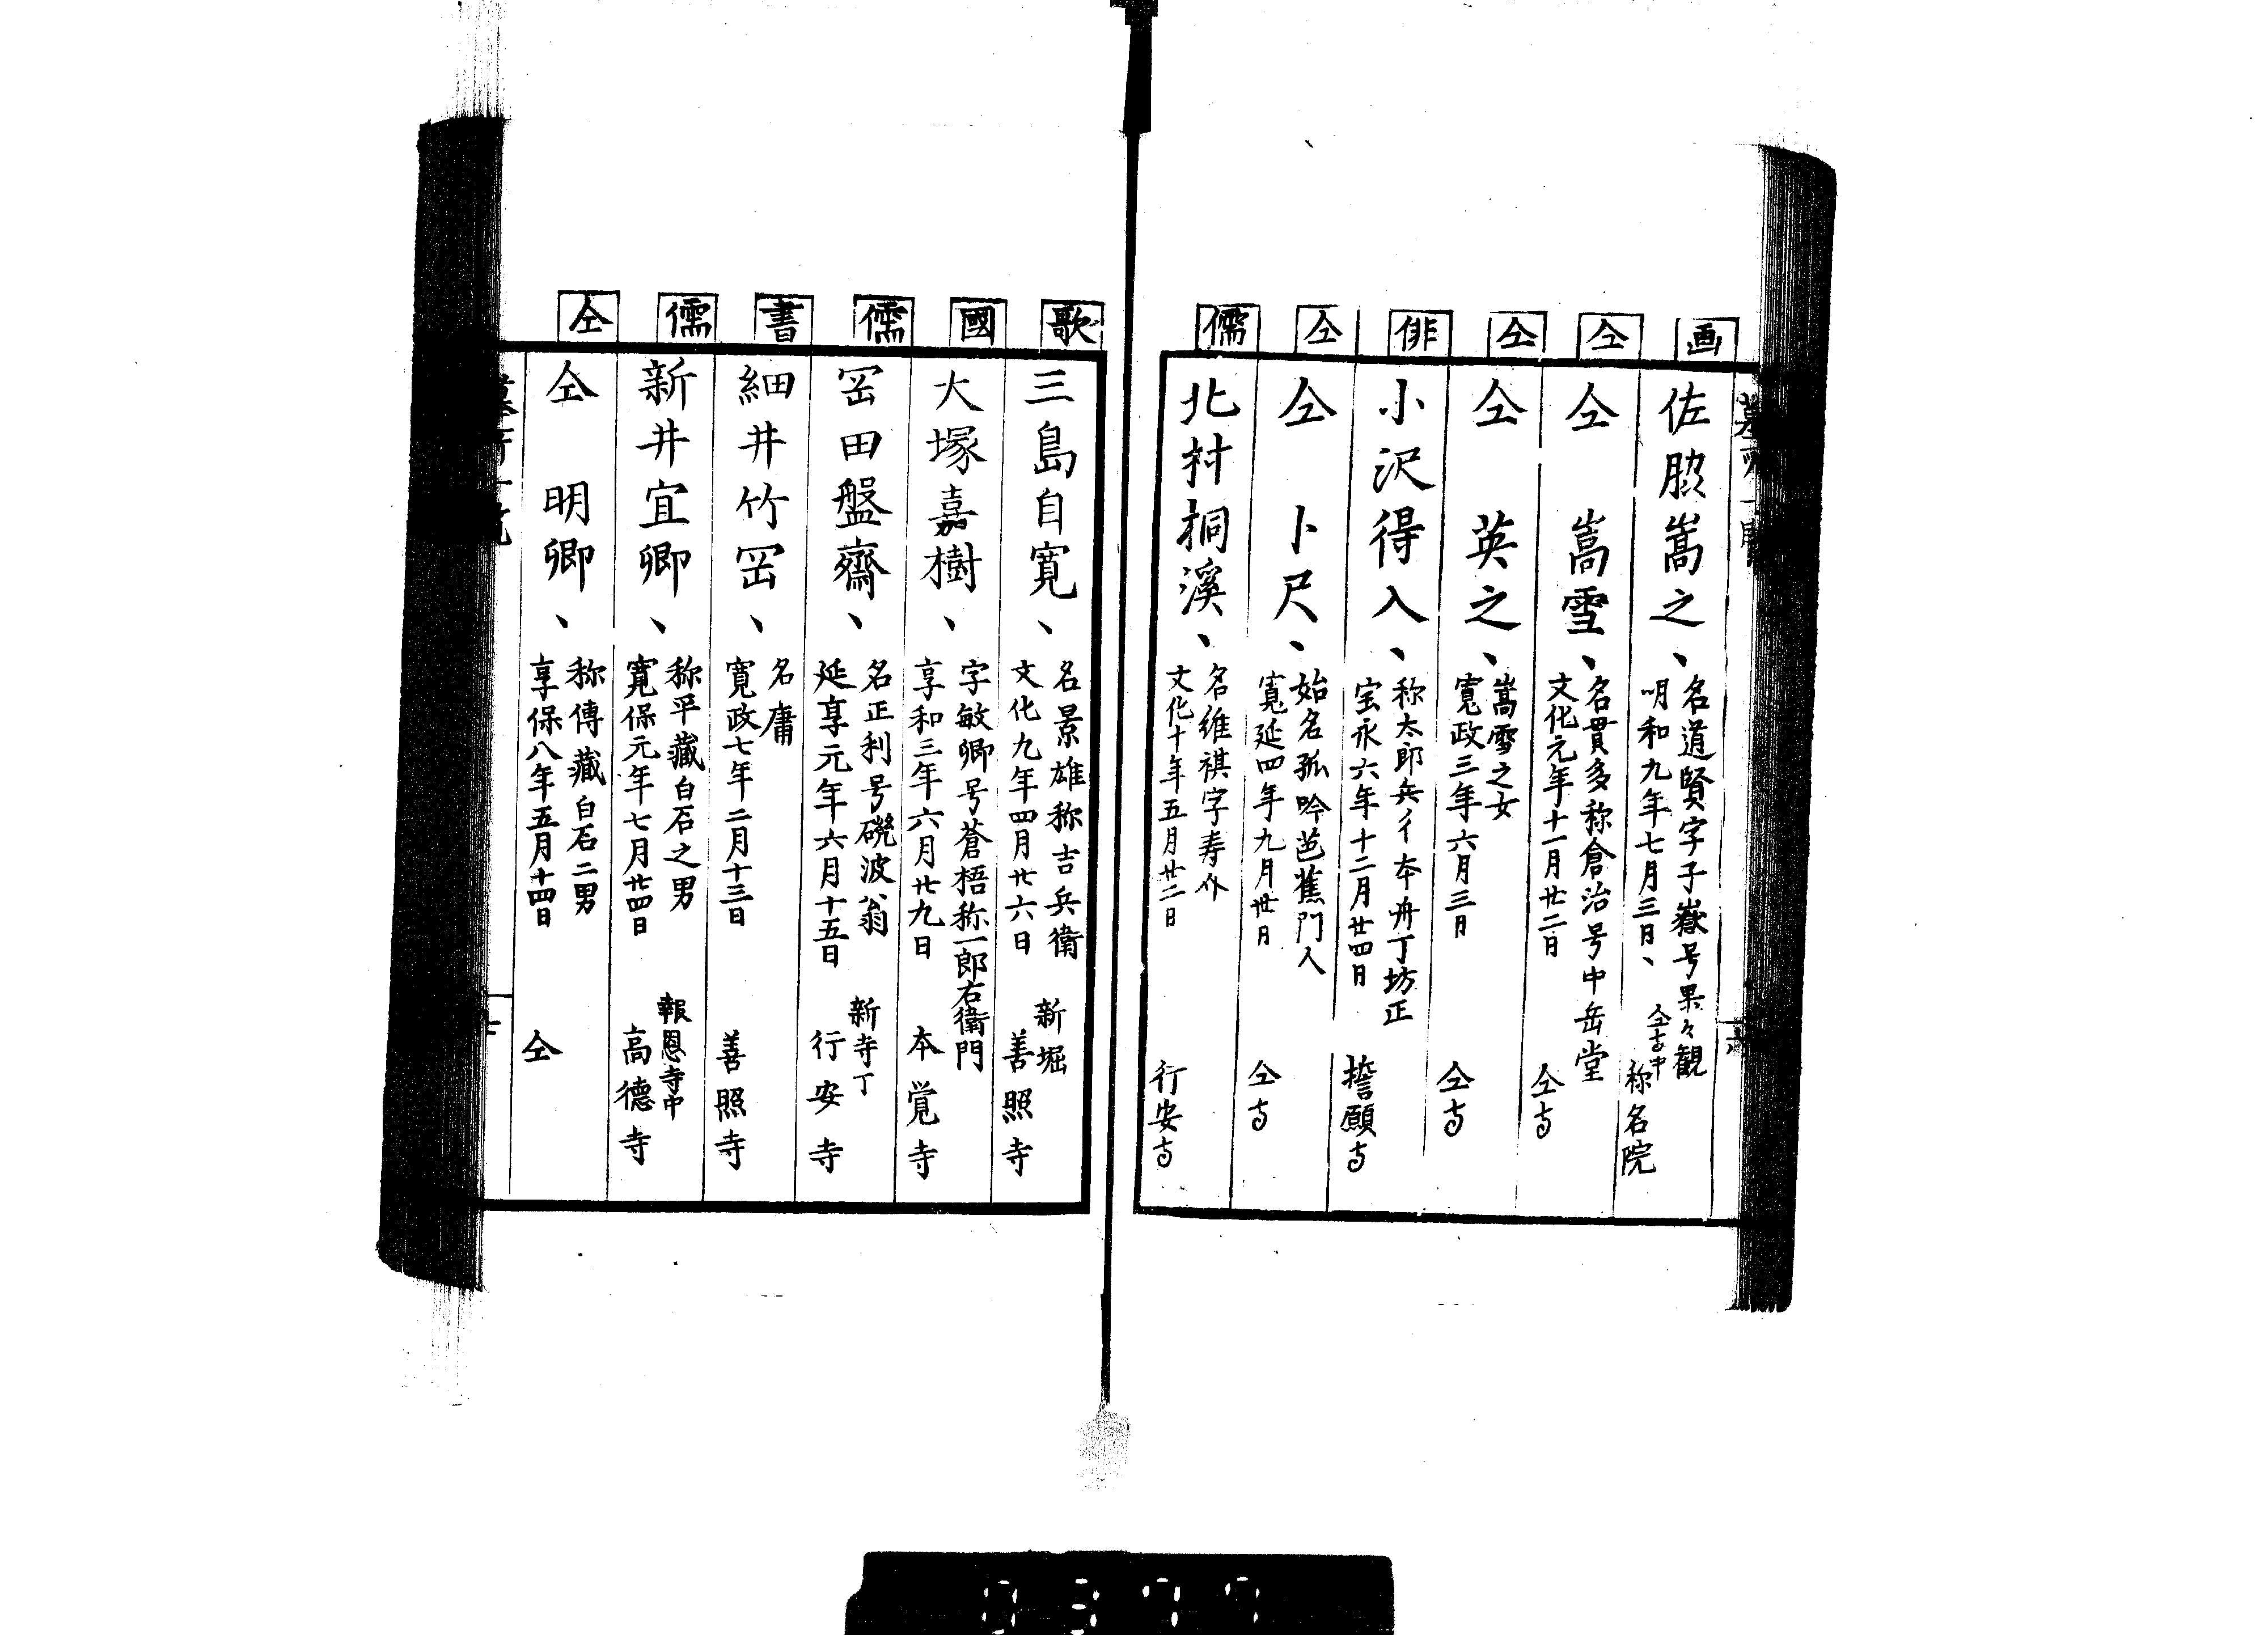 画
佐脇嵩之、
名道賢字子嶽号果々観
明和九年七月三日、
仝寺中
称名院
仝
仝 嵩雪、
名貫多称倉治号中岳堂
文化元年十一月廿二日
仝寺
仝
仝 英之、
嵩雪之女
寛政三年六月三日
仝寺
俳
小沢得入、
称太郎兵衛本舟丁坊正
宝永六年十二月廿四日
誓願寺
仝
仝 卜尺、
始名孤吟芭蕉門人
寛延四年九月卅日
仝寺
儒
北村桐溪、
名維祺字寿
文化十年五月廿二日
行安寺
歌
三島自寛、
名景雄称吉兵衛
文化九年四月廿六日
新堀
善照寺
國
大塚嘉樹、
字敏卿号蒼梧称一郎右衛門
享和三年六月廿九日
本覚寺
儒
岡田盤齋、
名正利号磯波翁
延享元年六月十五日
新寺丁
行安寺
書
細井竹岡、
名庸
寛政七年二月十三日
善照寺
儒
新井宜卿、
称平藏白石之男
寛保元年七月廿四日
報恩寺中
高德寺
仝
仝 明卿、
称傳藏白石二男
享保八年五月十四日
仝